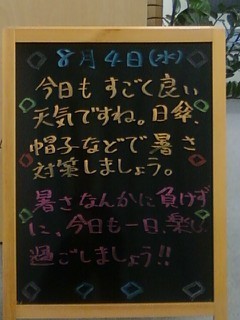 8月4日(水)
今日もすごく良い
天気ですね。日傘、
帽子などで暑さ
対策しましょう。
暑さなんかに負けず
に、今日も一日、楽しく
過ごしましょう!!